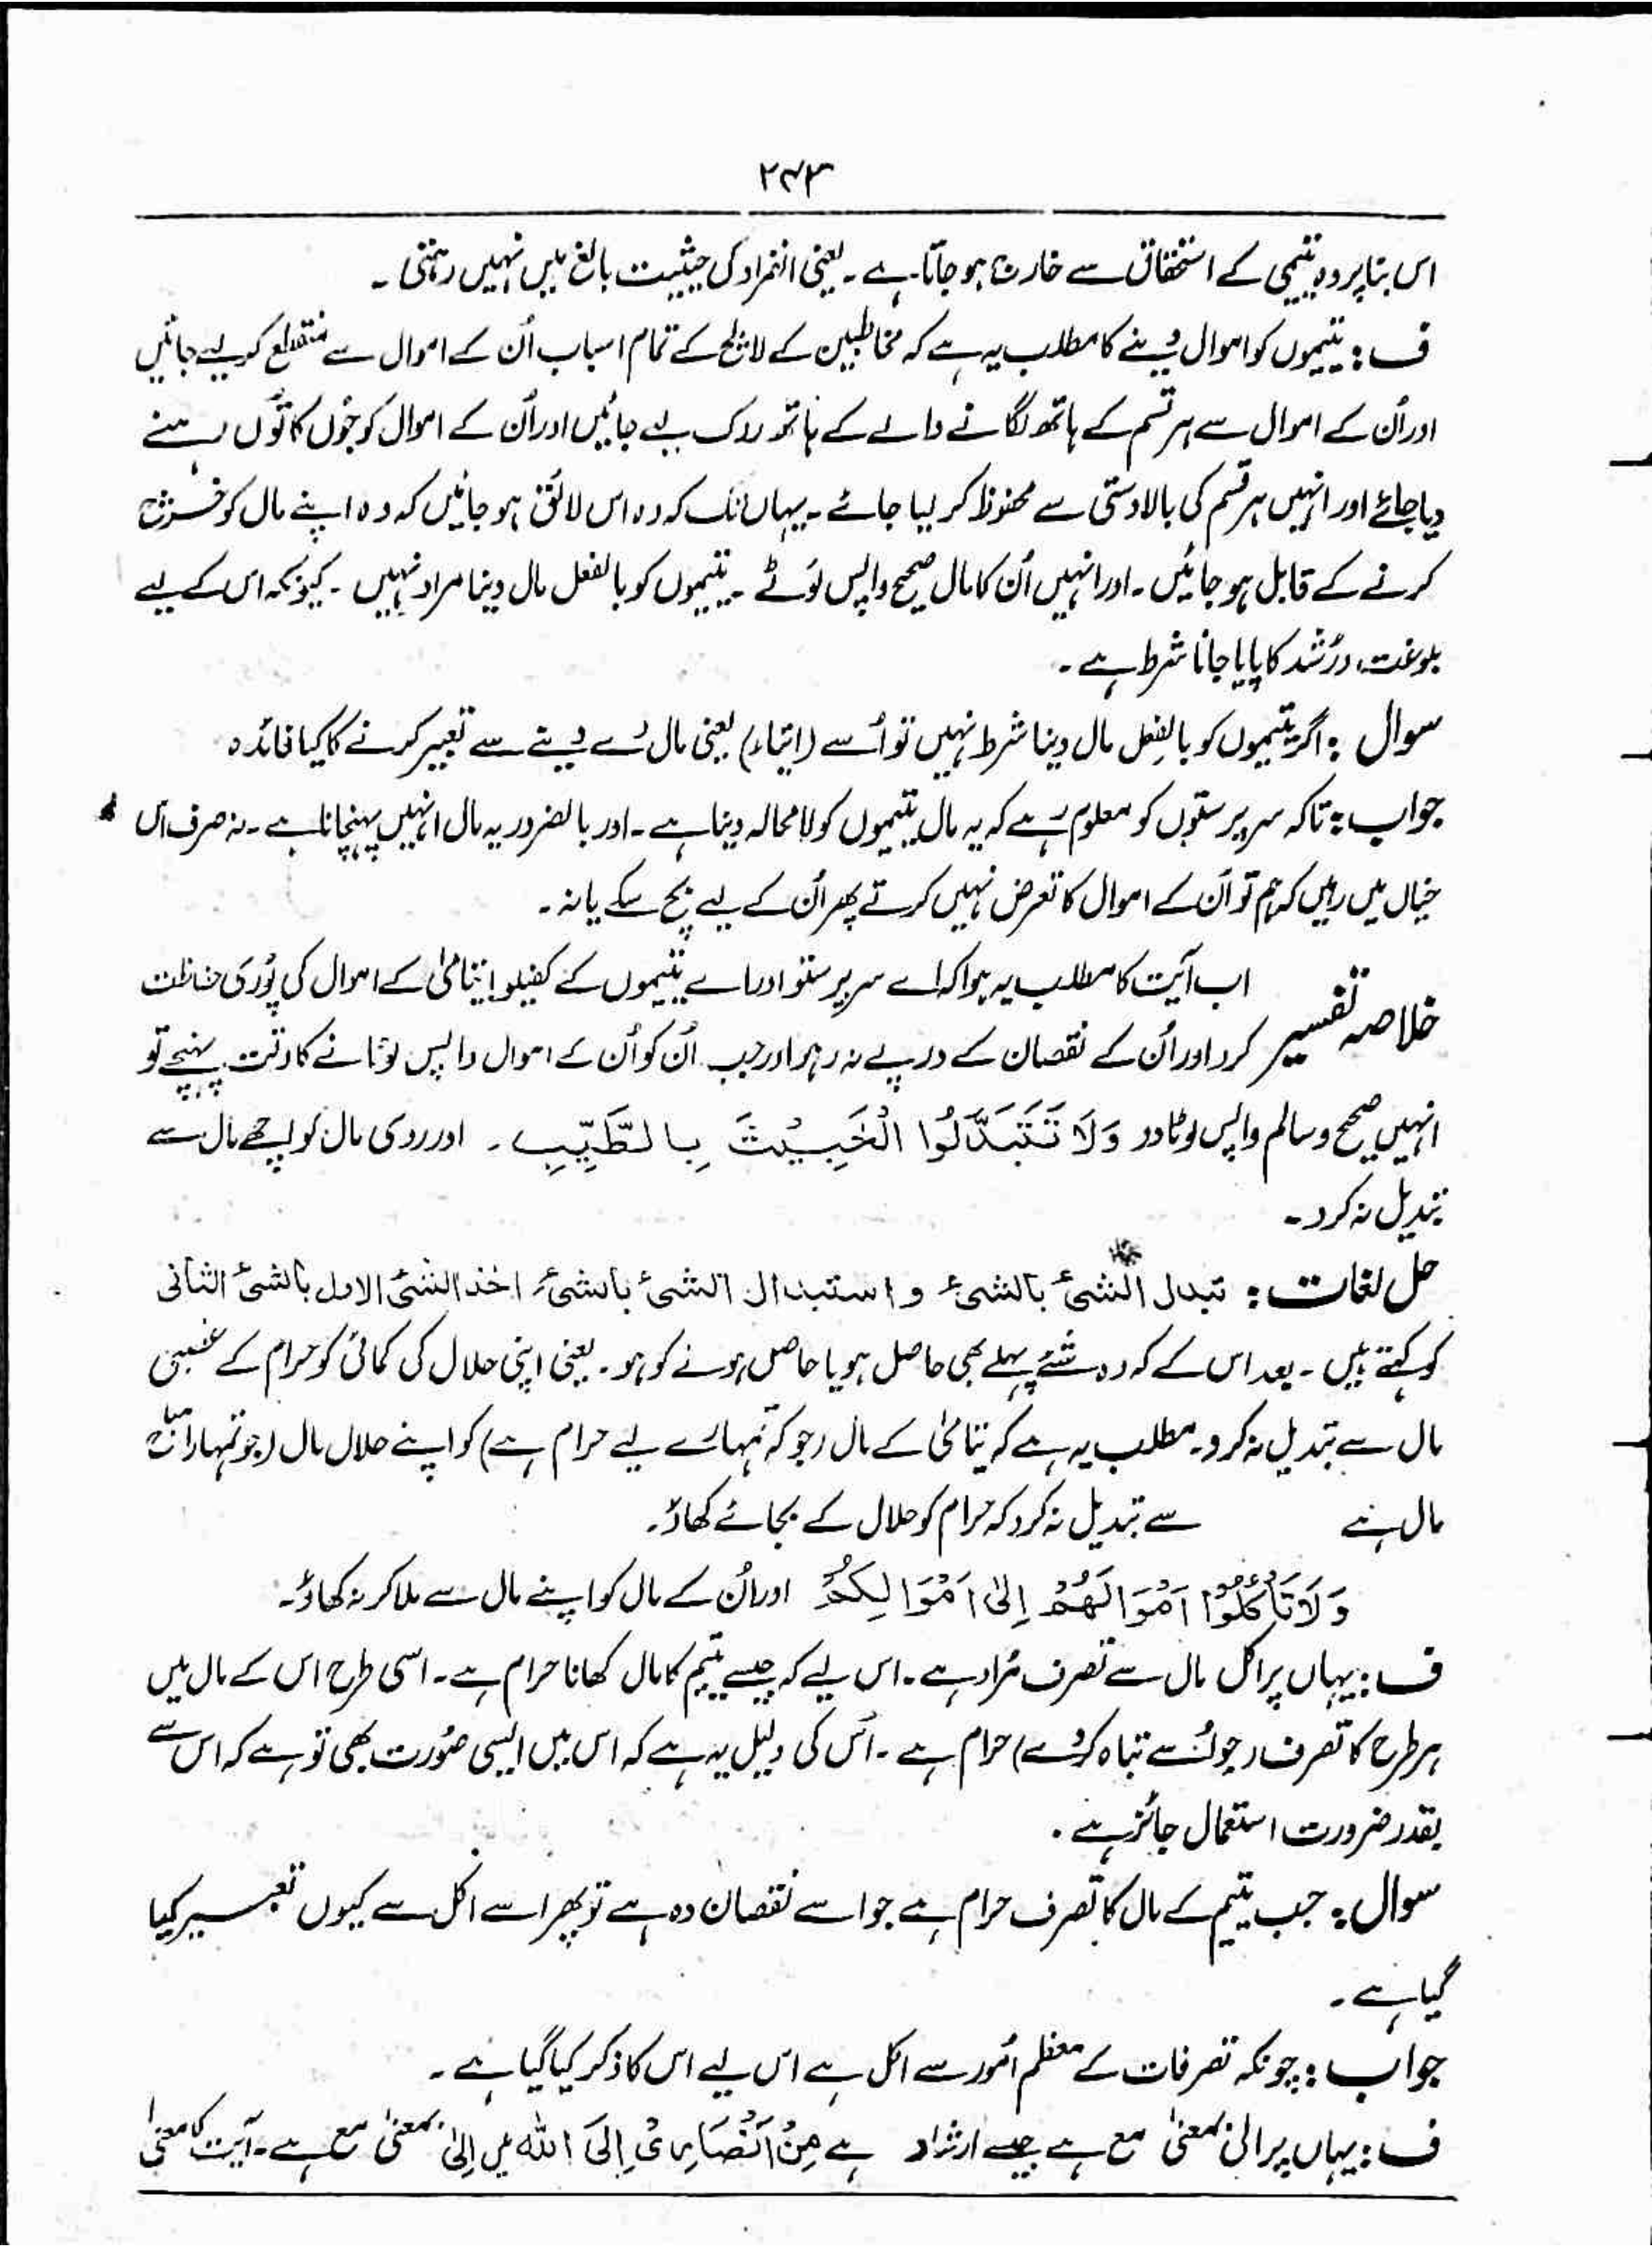 ۲۴۳
اس بنا پر وہ یتیمی کے استحقاق سے خارج ہو جاتا ہے ۔ یعنی انفراد کی حیثیت بالغ میں نہیں رہتی ۔
ف : یتیموں کو اموال دینے کا مطلب یہ ہے کہ مخاطبین کے لالچ کے تمام اسباب اُن کے اموال سے منقطع کر لیے جائیں
اور اُن کے اموال سے ہر قسم کے ہاتھ لگانے والے کے ہاتھ روک لیے جائیں اور اُن کے اموال کو جُوں کا تُوں رہنے
دیا جائے اور انہیں ہر قسم کی بالا دستی سے محفوظ کر لیا جائے ۔ یہاں تک کہ وہ اس لائق ہو جائیں کہ وہ اپنے مال کو خرچ
کرنے کے قابل ہو جائیں ۔ اور انہیں اُن کا مال صحیح واپس لوٹے ۔ یتیموں کو بالفعل مال دینا مراد نہیں ۔ کیونکہ اس کے لیے
بلوغت ورُشد کا پایا جانا شرط ہے ۔
سوال : اگر یتیموں کو بالفعل مال دینا شرط نہیں تو اُسے (ایتاء) یعنی مال دے دینے سے تعبیر کرنے کا کیا فائدہ
جواب : تاکہ سرپرستوں کو معلوم رہے کہ یہ مال یتیموں کو لامحالہ دینا ہے ۔ اور بالضرور یہ مال انہیں پہنچانا ہے ۔ نہ صرف اس
خیال میں رہیں کہ ہم تو اُن کے اموال کا تعرض نہیں کرتے پھر اُن کے لیے بچ سکے یا نہ ۔
خلاصہ تفسیر اب آیت کا مطلب یہ ہوا کہ اے سرپرستو اور اے یتیموں کے کفیلو یتامیٰ کے اموال کی پُوری حفاظت
کرو اور اُن کے نقصان کے درپے نہ رہو اور جب اُن کو اُن کے اموال واپس لوٹانے کا وقت پہنچے تو
انہیں صحیح و سالم واپس لوٹا دو وَلَا تَتَبَدَّلُوا الْخَبِيْثَ بِالطَّيِّبِ ۔ اور ردی مال کو اچھے مال سے
تبدیل نہ کرو ۔
حل لغات : تبدل الشئ بالشئ و استبدال الشئ بالشئ اخذ الشئ الاول بالشئ الثانی
کو کہتے ہیں ۔ بعد اس کے کہ وہ شئے پہلے بھی حاصل ہو یا حاصل ہونے کو ہو ۔ یعنی اپنی حلال کی کمائی کو حرام کے غصبی
مال سے تبدیل نہ کرو ۔ مطلب یہ ہے کہ یتامیٰ کے مال (جو کہ تمہارے لیے حرام ہے) کو اپنے حلال مال (جو تمہارا اپنا
مال ہے سے تبدیل نہ کرو کہ حرام کو حلال کے بجائے کھاؤ ۔
وَلَا تَأْكُلُوْا اَمْوَالَهُمْ اِلٰى اَمْوَالِكُمْ اور اُن کے مال کو اپنے مال سے ملا کر نہ کھاؤ ۔
ف : یہاں پر اکل مال سے تصرف مُراد ہے ۔ اس لیے کہ جیسے یتیم کا مال کھانا حرام ہے ۔ اسی طرح اس کے مال میں
ہر طرح کا تصرف (جو اُسے تباہ کر دے) حرام ہے ۔ اُس کی دلیل یہ ہے کہ اس میں ایسی صُورت بھی تو ہے کہ اس سے
بقدر ضرورت استعمال جائز ہے ۔
سوال : جب یتیم کے مال کا تصرف حرام ہے جو اسے نقصان دہ ہے تو پھر اسے اکل سے کیوں تعبیر کیا
گیا ہے ۔
جواب : چونکہ تصرفات کے معظم اُمور سے اکل ہے اس لیے اس کا ذکر کیا گیا ہے ۔
ف : یہاں پر الیٰ بمعنیٰ مع ہے جیسے ارشاد ہے مِنْ اَنْصَارِىْ اِلَى اللّٰه میں اِلیٰ بمعنیٰ مع ہے ۔ آیت کا معنیٰ